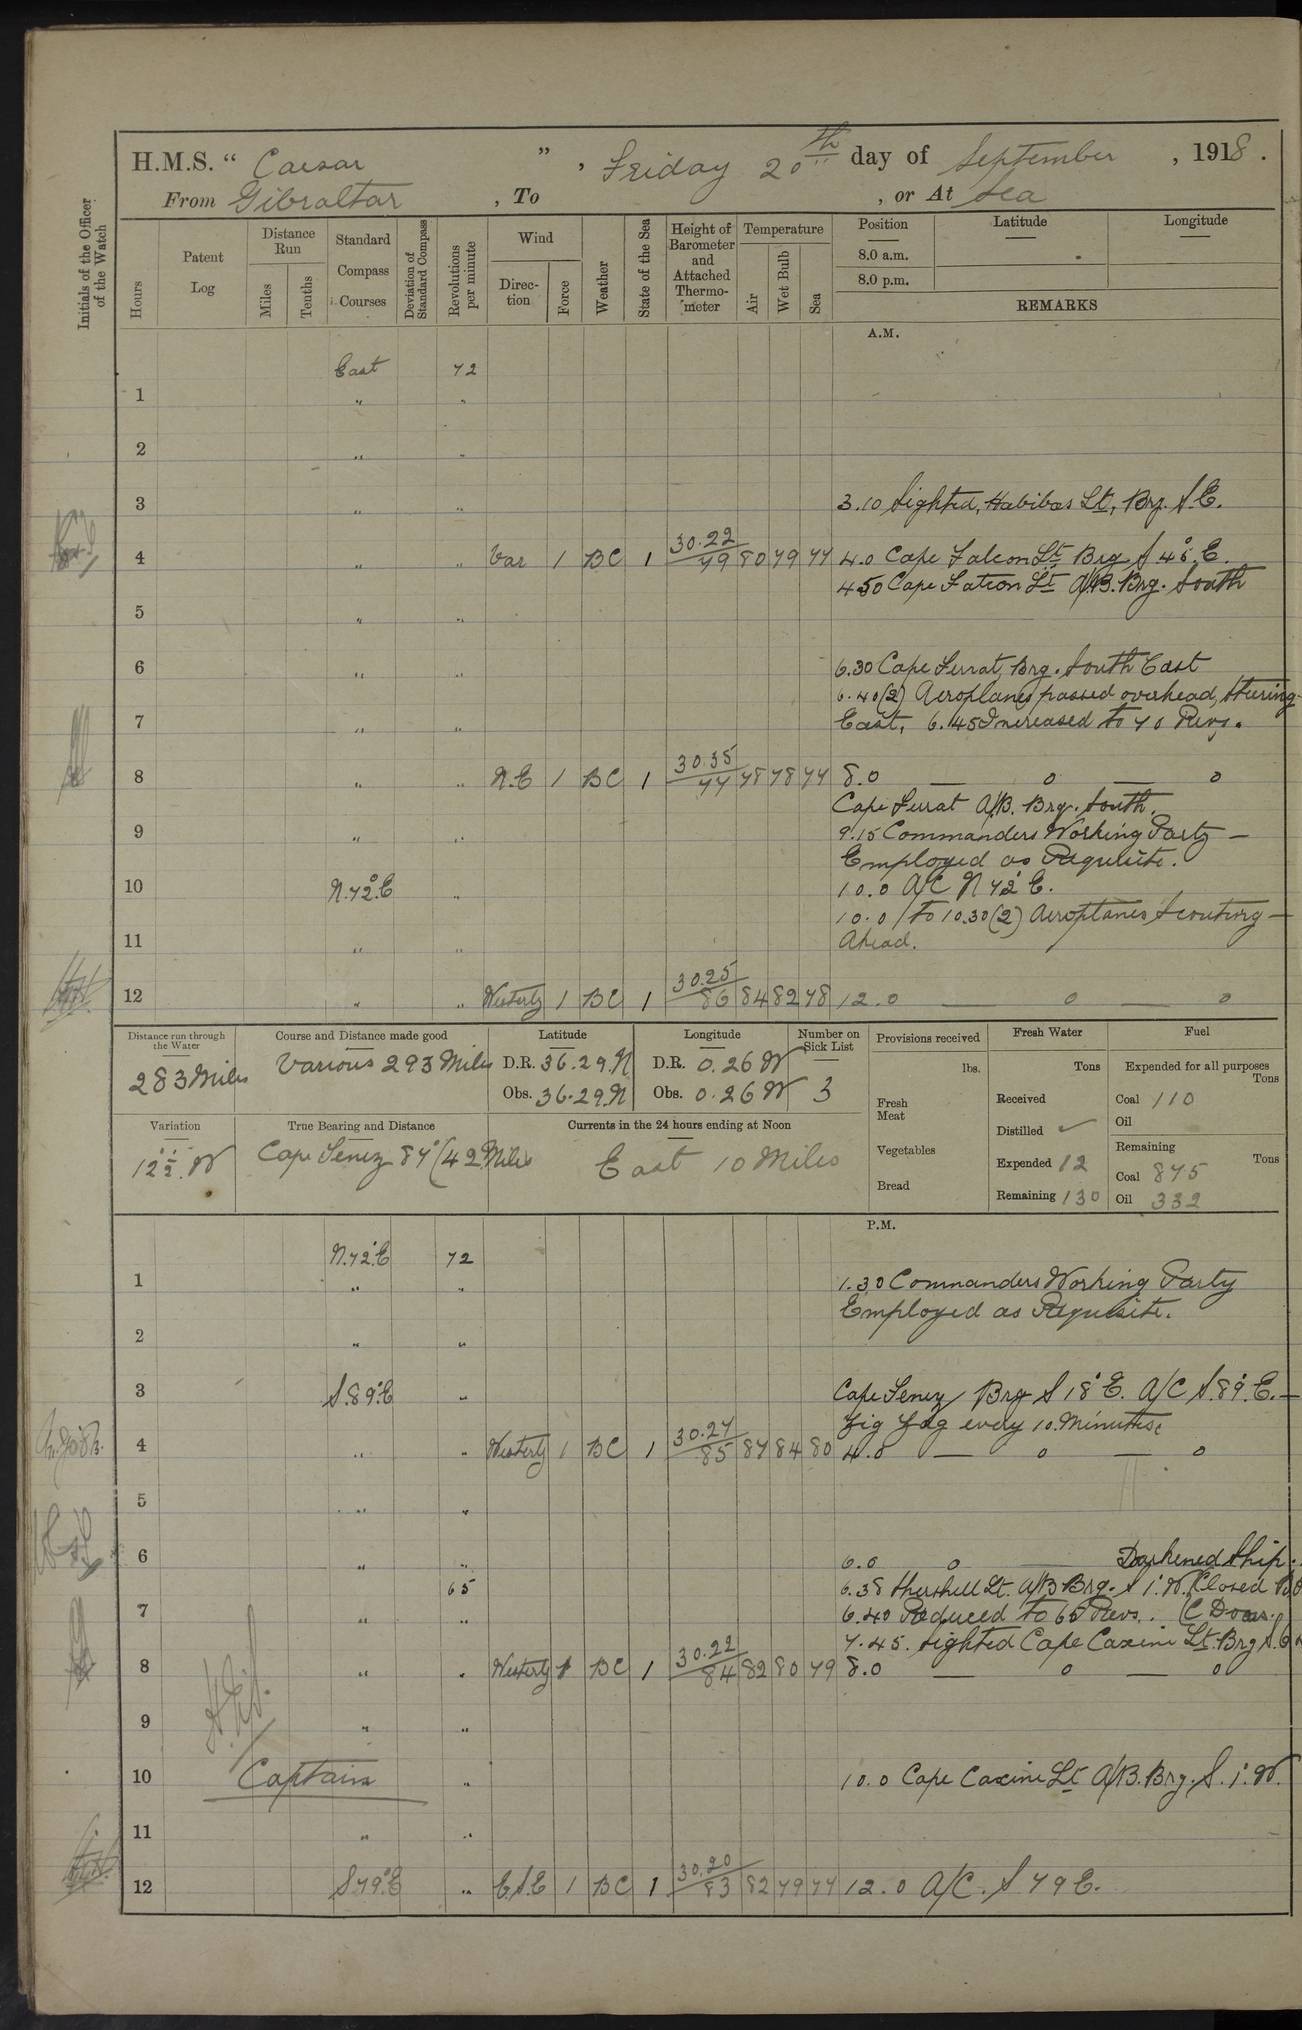 H.M.S. “ Caesar ” , Friday 20th day of September , 1918 .
From Gibraltar , To , or At Sea
Initials of the Officer of the Watch
Hours
Patent Log
Distance Run
Miles
Tenths
Standard Compass Courses
Deviation of Standard Compass
Revolutions per minute
Wind
Direction
Force
Weather
State of the Sea
Height of Barometer and Attached Thermometer
Temperature
Air
Wet Bulb
Sea
Position
Latitude
Longitude
8.0 a.m.
8.0 p.m.
REMARKS
A.M.
East 72
1 " "
2 " "
3 " " 3.10 Sighted, Habibas Lt, Brg. S.E.
4 " " Var 1 BC 1 30.22/79 80 79 77 4.0 Cape Falcon Lt Brg S 46° E.
4.50 Cape Falcon Lt A/B. Brg. South
5 " "
6 " " 6.30 Cape Ferrat, Brg. South East
6.40 (2) Aeroplanes passed overhead, Steering
7 " " East, 6.45 Increased to 70 Revs.
8 " " N.E 1 BC 1 30.35/77 78 78 77 8.0 — o — o
Cape Ferrat A/B. Brg. South.
9 " " 9.15 Commanders Working Party —
Employed as Requisite.
10 N.72°.E " 10.0 A/C N 72° E.
10.0 to 10.30 (2) Aeroplanes Scouting —
11 " " Ahead.
12 " " Westerly 1 BC 1 30.25/86 84 82 78 12.0 — o — o
Distance run through the Water
283 Miles
Course and Distance made good
Various 293 Miles
Latitude
D.R. 36.29.N
Obs. 36.29.N
Longitude
D.R. 0.26 W
Obs. 0.26 W
Number on Sick List
3
Provisions received
lbs.
Fresh Meat
Vegetables
Bread
Fresh Water
Tons
Received
Distilled
Expended 12
Remaining 130
Fuel
Expended for all purposes
Tons
Coal 110
Oil
Remaining
Tons
Coal 875
Oil 332
Variation
12½° W
True Bearing and Distance
Cape Tenez 87° (42 Miles
Currents in the 24 hours ending at Noon
East 10 Miles
P.M.
N.72°.E 72
1 " " 1.30 Commanders Working Party
Employed as Requisite.
2 " "
3 S.89°.E " Cape Tenez Brg S 18° E. A/C S.89°. E. —
Zig Zag every 10. Minutes.
4 " " Westerly 1 BC 1 30.27/85 87 84 80 4.0 — o — o
5 " "
6 " " 6.0 o — Darkened Ship.
65 6.38 Shershell Lt. A/B Brg. S 1° W. Closed
7 " " 6.40 Reduced to 65 Revs. (C Doors.
7.45. Sighted Cape Caxine Lt. Brg
8 " " Westerly 1 BC 1 30.22/84 82 80 79 8.0 — o — o
9 " "
Captain
10 " 10.0 Cape Caxine Lt A/B. Brg. S. 1° W.
11 " "
12 S79°.E " E.S.E 1 BC 1 30.20/83 82 79 77 12.0 A/C. S 79 E.